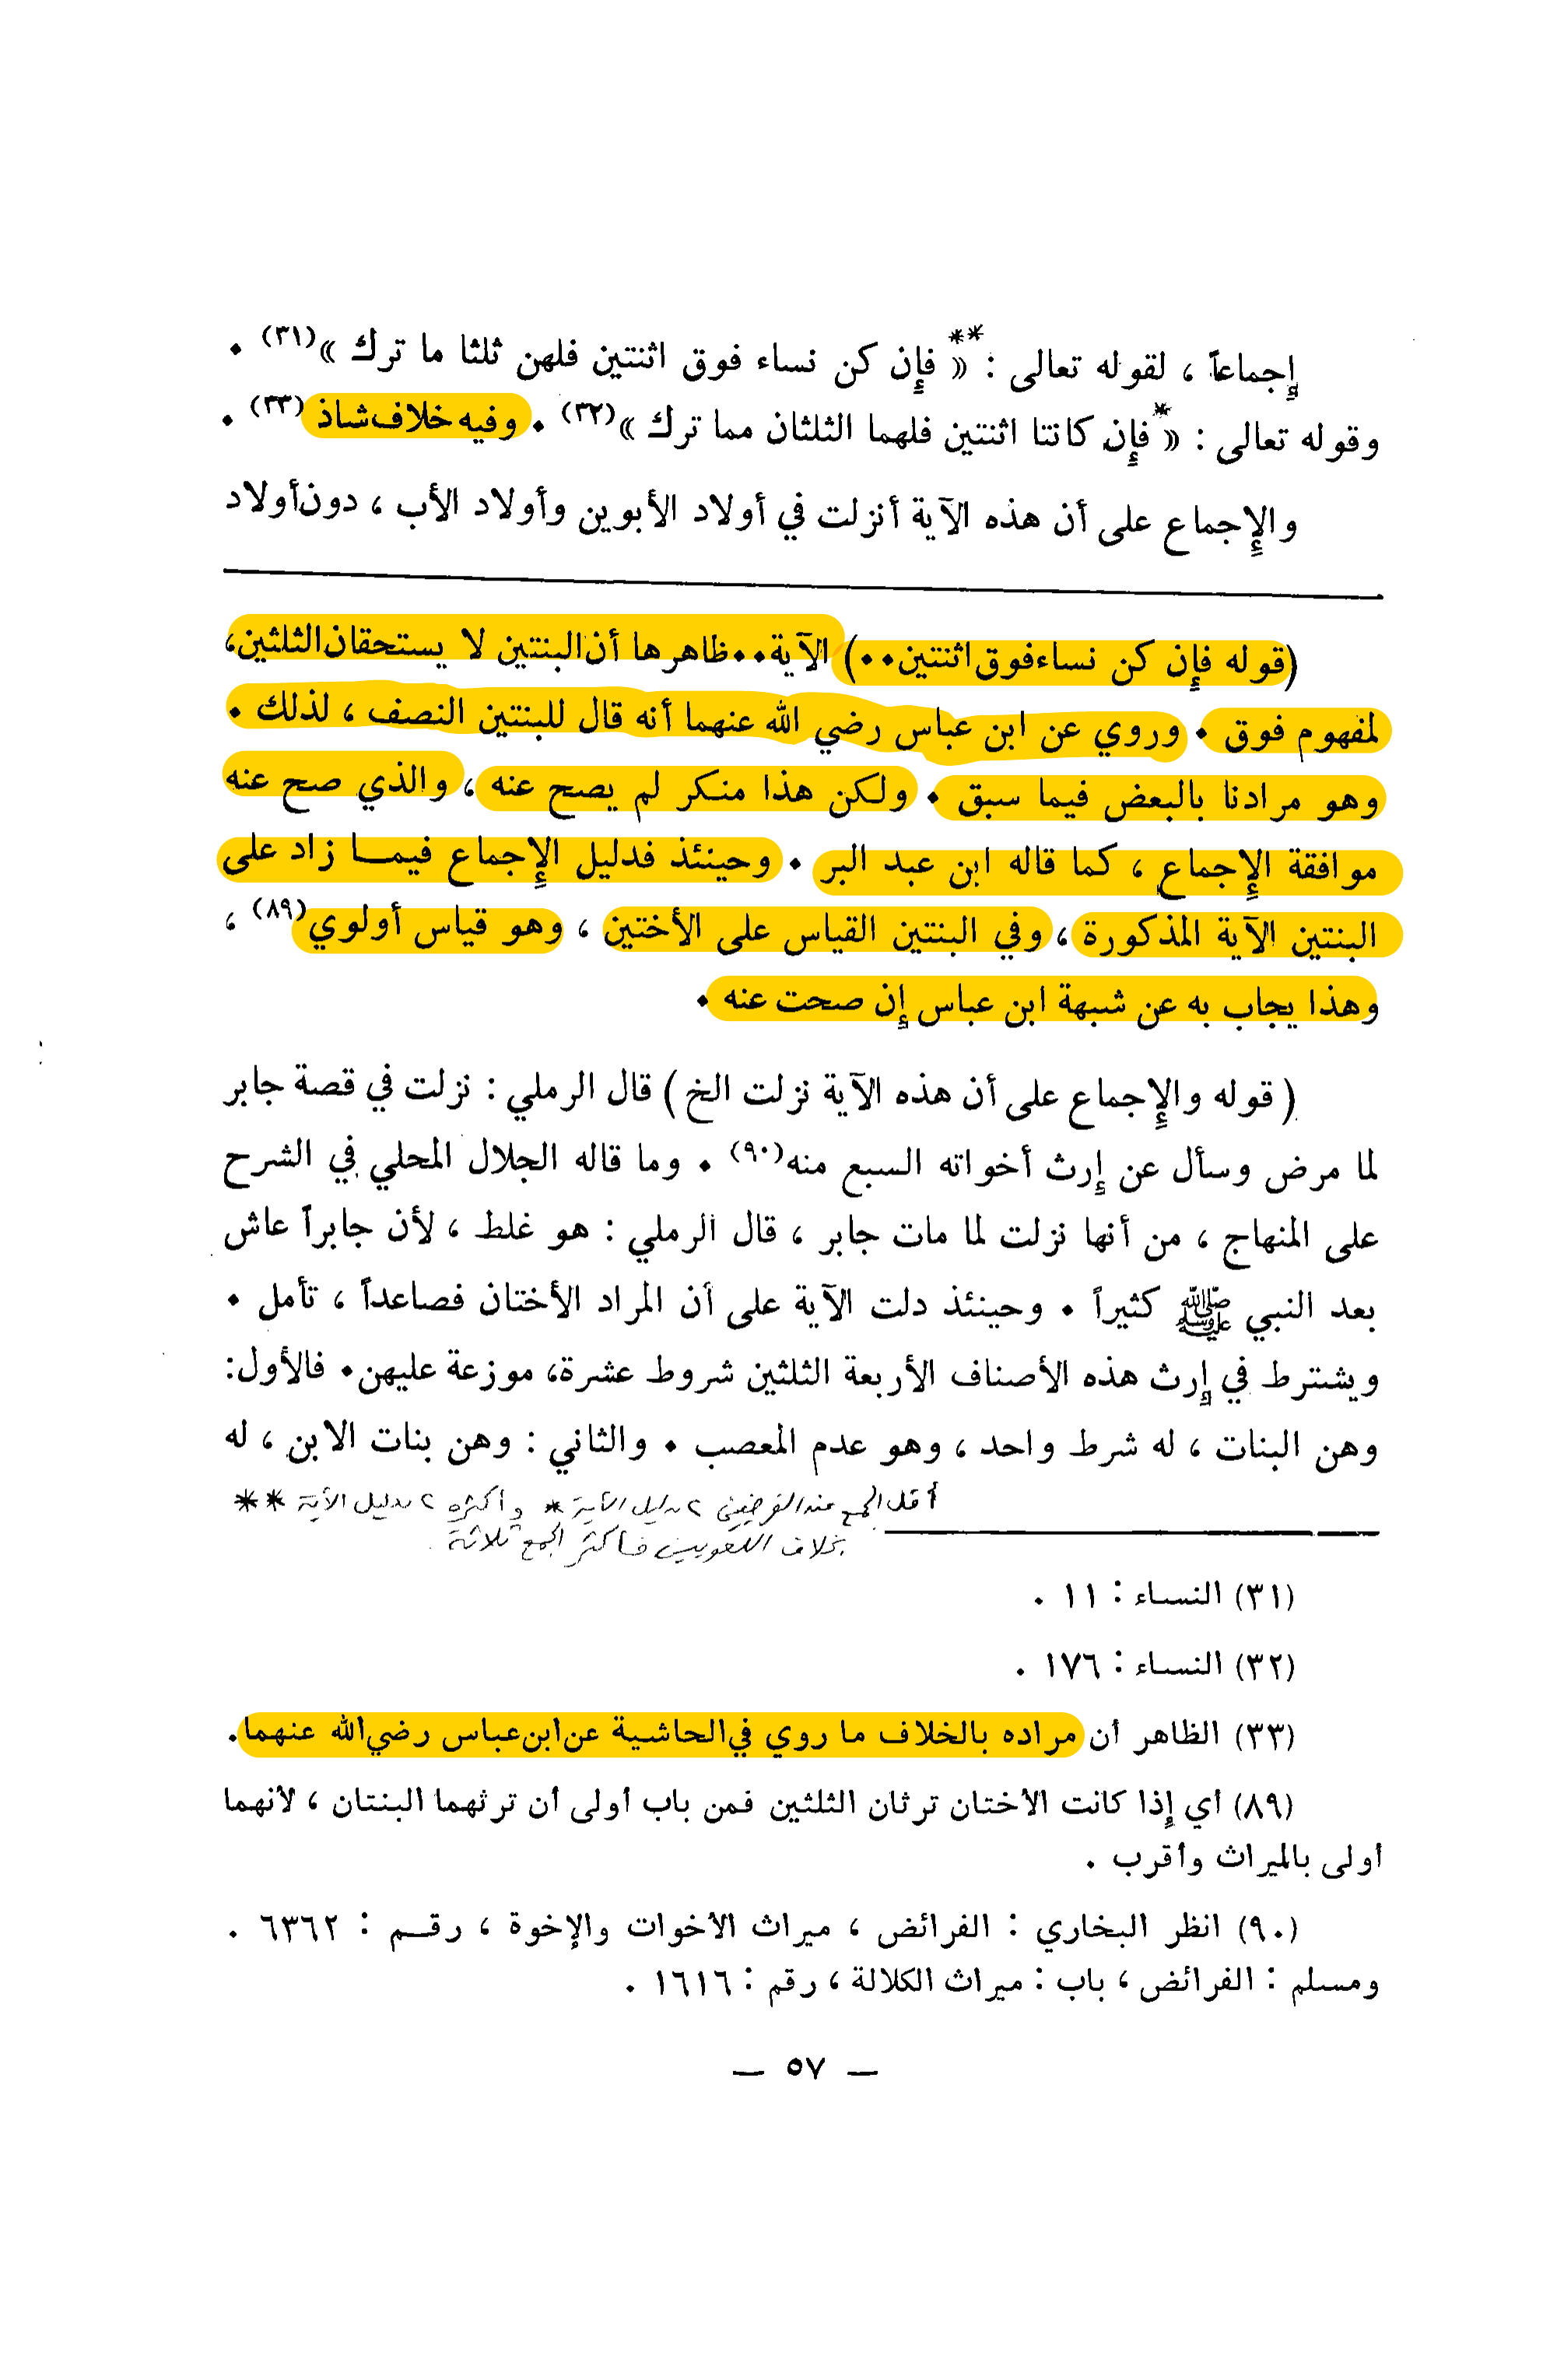 إجماعاً ، لقوله تعالى : ** « فإن كن نساء فوق اثنتين فلهن ثلثا ما ترك »(٣١) .
وقوله تعالى : * « فإن كانتا اثنتين فلهما الثلثان مما ترك »(٣٢) . وفيه خلاف شاذ (٣٣) .
والإجماع على أن هذه الآية أنزلت في أولاد الأبوين وأولاد الأب ، دون أولاد
(قوله فإن كن نساء فوق اثنتين..) الآية.. ظاهرها أن البنتين لا يستحقان الثلثين،
لمفهوم فوق . وروي عن ابن عباس رضي الله عنهما أنه قال للبنتين النصف ، لذلك .
وهو مرادنا بالبعض فيما سبق . ولكن هذا منكر لم يصح عنه ، والذي صح عنه
موافقة الإجماع ، كما قاله ابن عبد البر . وحينئذ فدليل الإجماع فيما زاد على
البنتين الآية المذكورة ، وفي البنتين القياس على الأختين ، وهو قياس أولوي(٨٩) ،
وهذا يجاب به عن شبهة ابن عباس إن صحت عنه .
( قوله والإجماع على أن هذه الآية نزلت الخ ) قال الرملي : نزلت في قصة جابر
لما مرض وسأل عن إرث أخواته السبع منه(٩٠) . وما قاله الجلال المحلي في الشرح
على المنهاج ، من أنها نزلت لما مات جابر ، قال الرملي : هو غلط ، لأن جابراً عاش
بعد النبي ﷺ كثيراً . وحينئذ دلت الآية على أن المراد الأختان فصاعداً ، تأمل .
ويشترط في إرث هذه الأصناف الأربعة الثلثين شروط عشرة، موزعة عليهن. فالأول:
وهن البنات ، له شرط واحد ، وهو عدم المعصب . والثاني : وهن بنات الابن ، له
أقل الجمع عند الفرضيين ٢ بدليل الآية * وأكثره ٢ بدليل الآية **
بخلاف اللغويين فأكثر الجمع ثلاثة .
(٣١) النساء : ١١ .
(٣٢) النساء : ١٧٦ .
(٣٣) الظاهر أن مراده بالخلاف ما روي في الحاشية عن ابن عباس رضي الله عنهما .
(٨٩) أي إذا كانت الأختان ترثان الثلثين فمن باب أولى أن ترثهما البنتان ، لأنهما
أولى بالميراث وأقرب .
(٩٠) انظر البخاري : الفرائض ، ميراث الأخوات والإخوة ، رقم : ٦٣٦٢ .
ومسلم : الفرائض ، باب : ميراث الكلالة ، رقم : ١٦١٦ .
— ٥٧ —